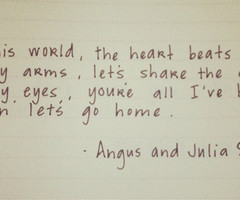 his world, the heart beats
y arms, let's share the
y eyes, you're all I've
n let's go home.
- Angus and Julia S